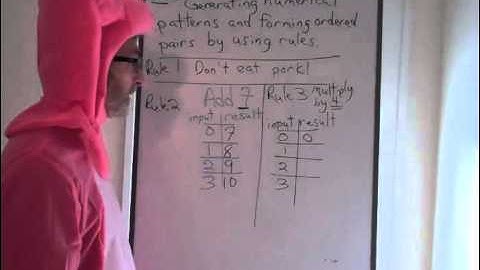 — Generating numerical
patterns and forming ordered
pairs by using rules.
Rule 1 Don't eat pork!
Rule 2 Add 7
input result
0 7
1 8
2 9
3 10
Rule 3 multiply
by 4
input result
0 0
1
2
3